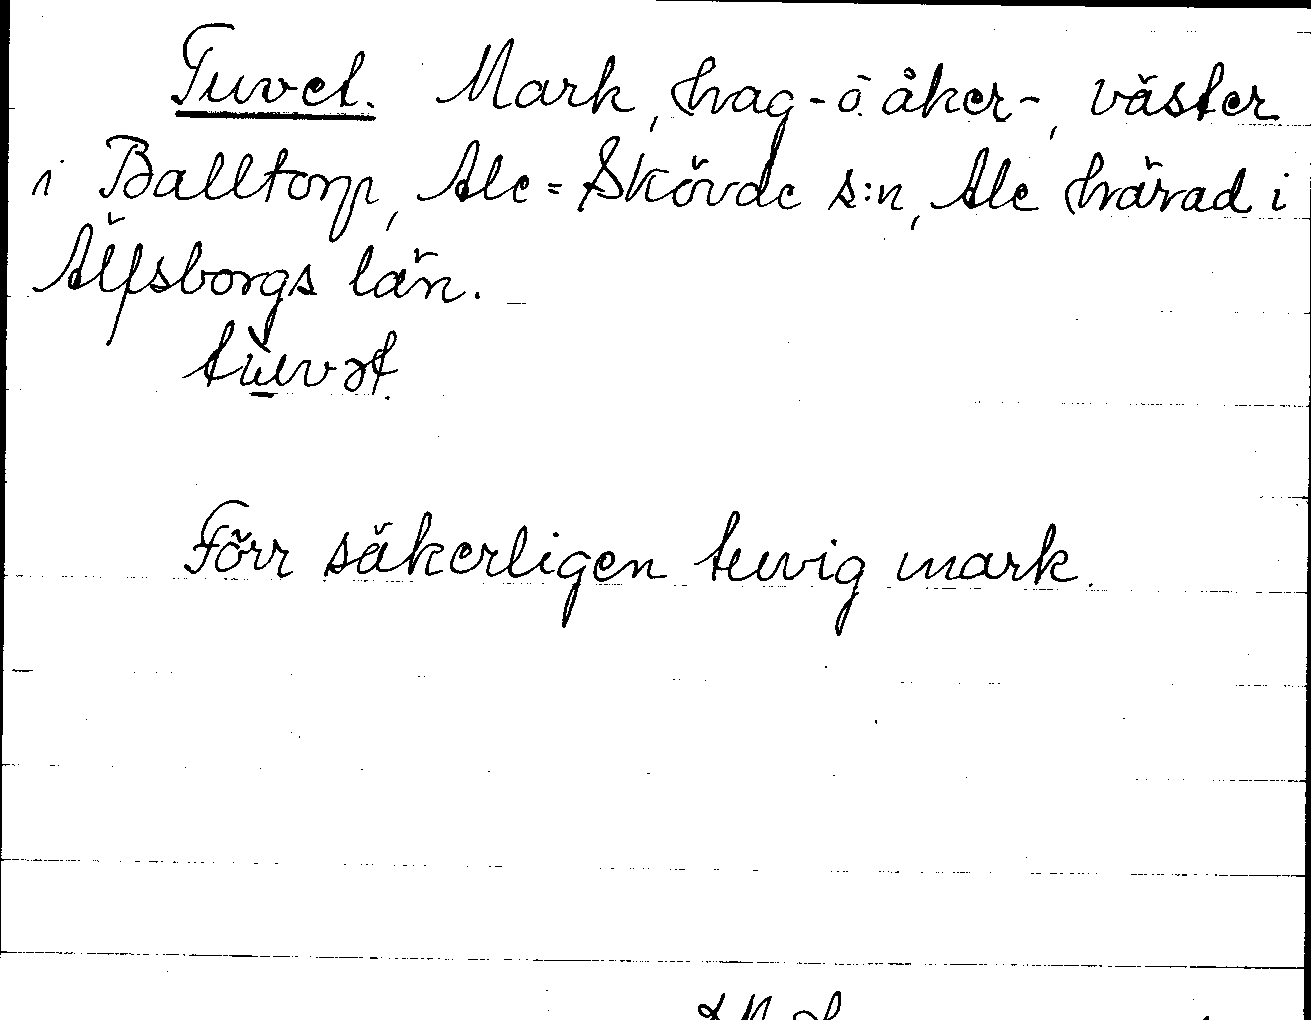 Tuvet. Mark, hag- o. åker-, väster
i Balltorp, Ale=Skövde s:n, Ale härad i
Älfsborgs län.
Förr säkerligen tuvig mark.